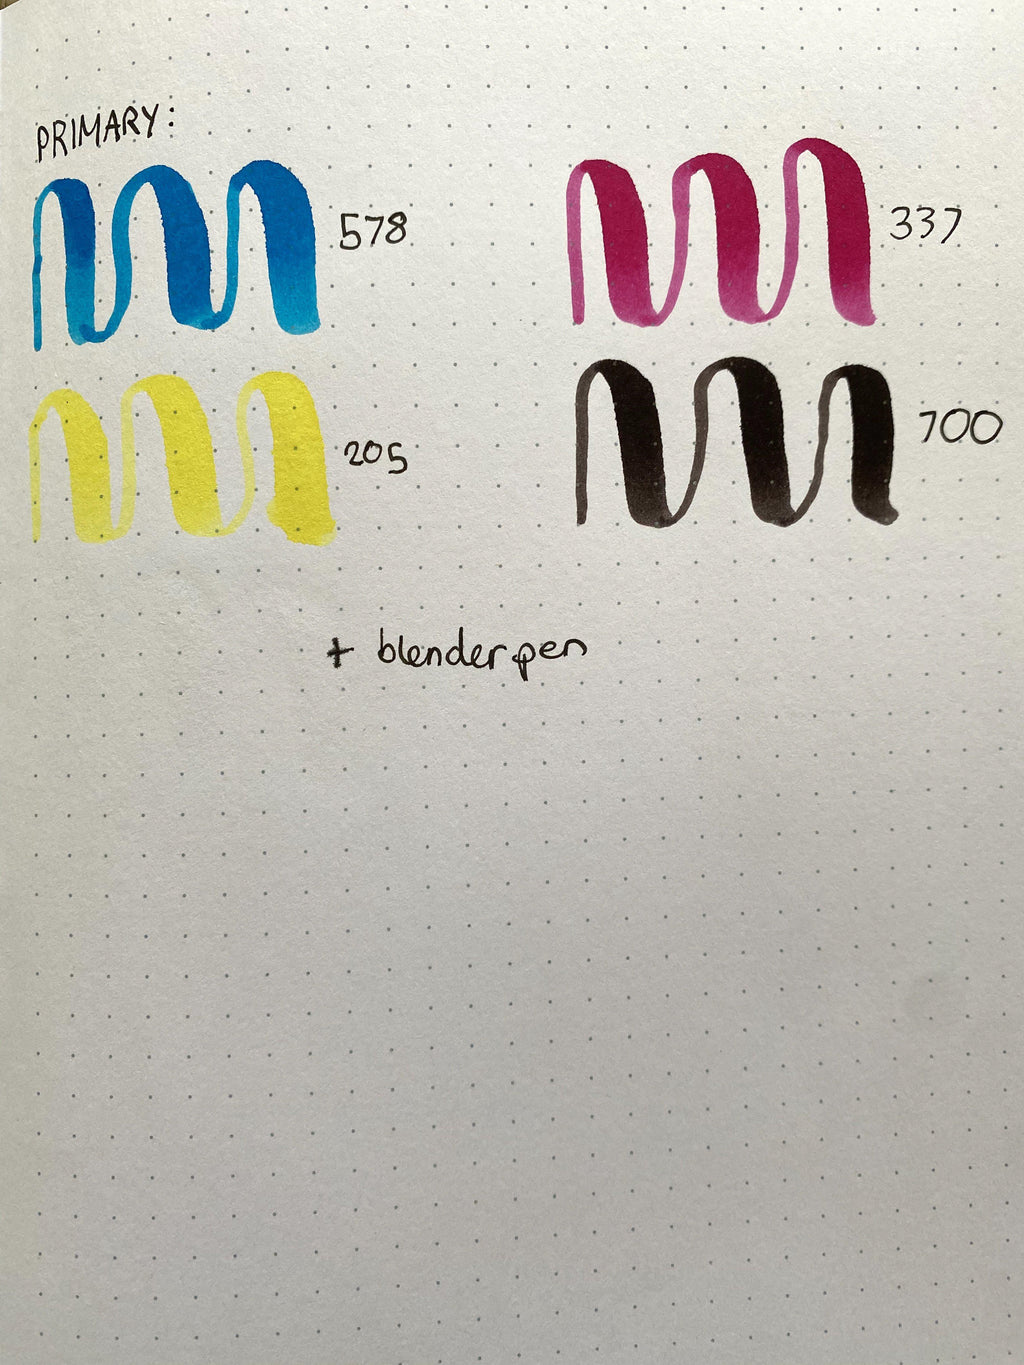 PRIMARY:
578
337
205
700
+ blenderpen